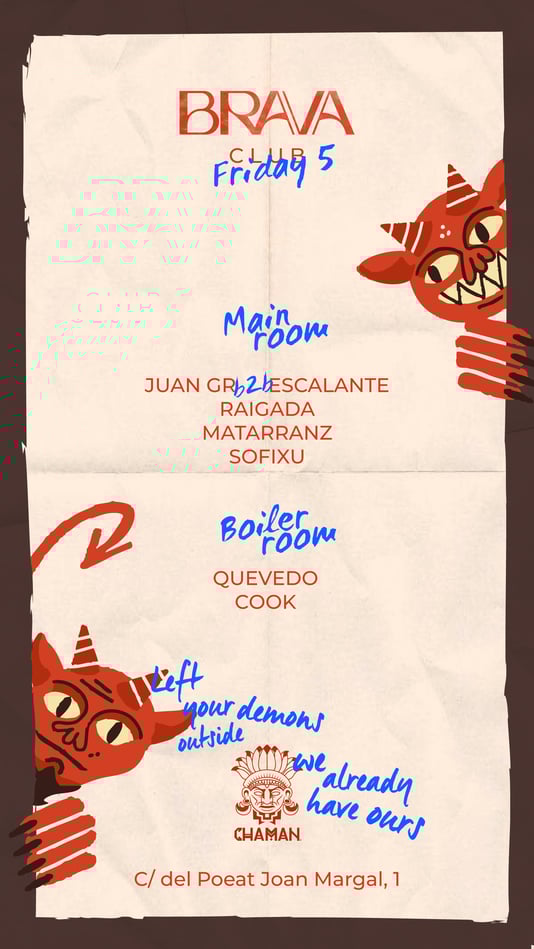 BRAVA
CLUB
Friday 5
Main
room
JUAN GR b2b ESCALANTE
RAIGADA
MATARRANZ
SOFIXU
Boiler
room
QUEVEDO
COOK
Left
your demons
outside
we
already
have ours
CHAMAN
C/ del Poeat Joan Margal, 1